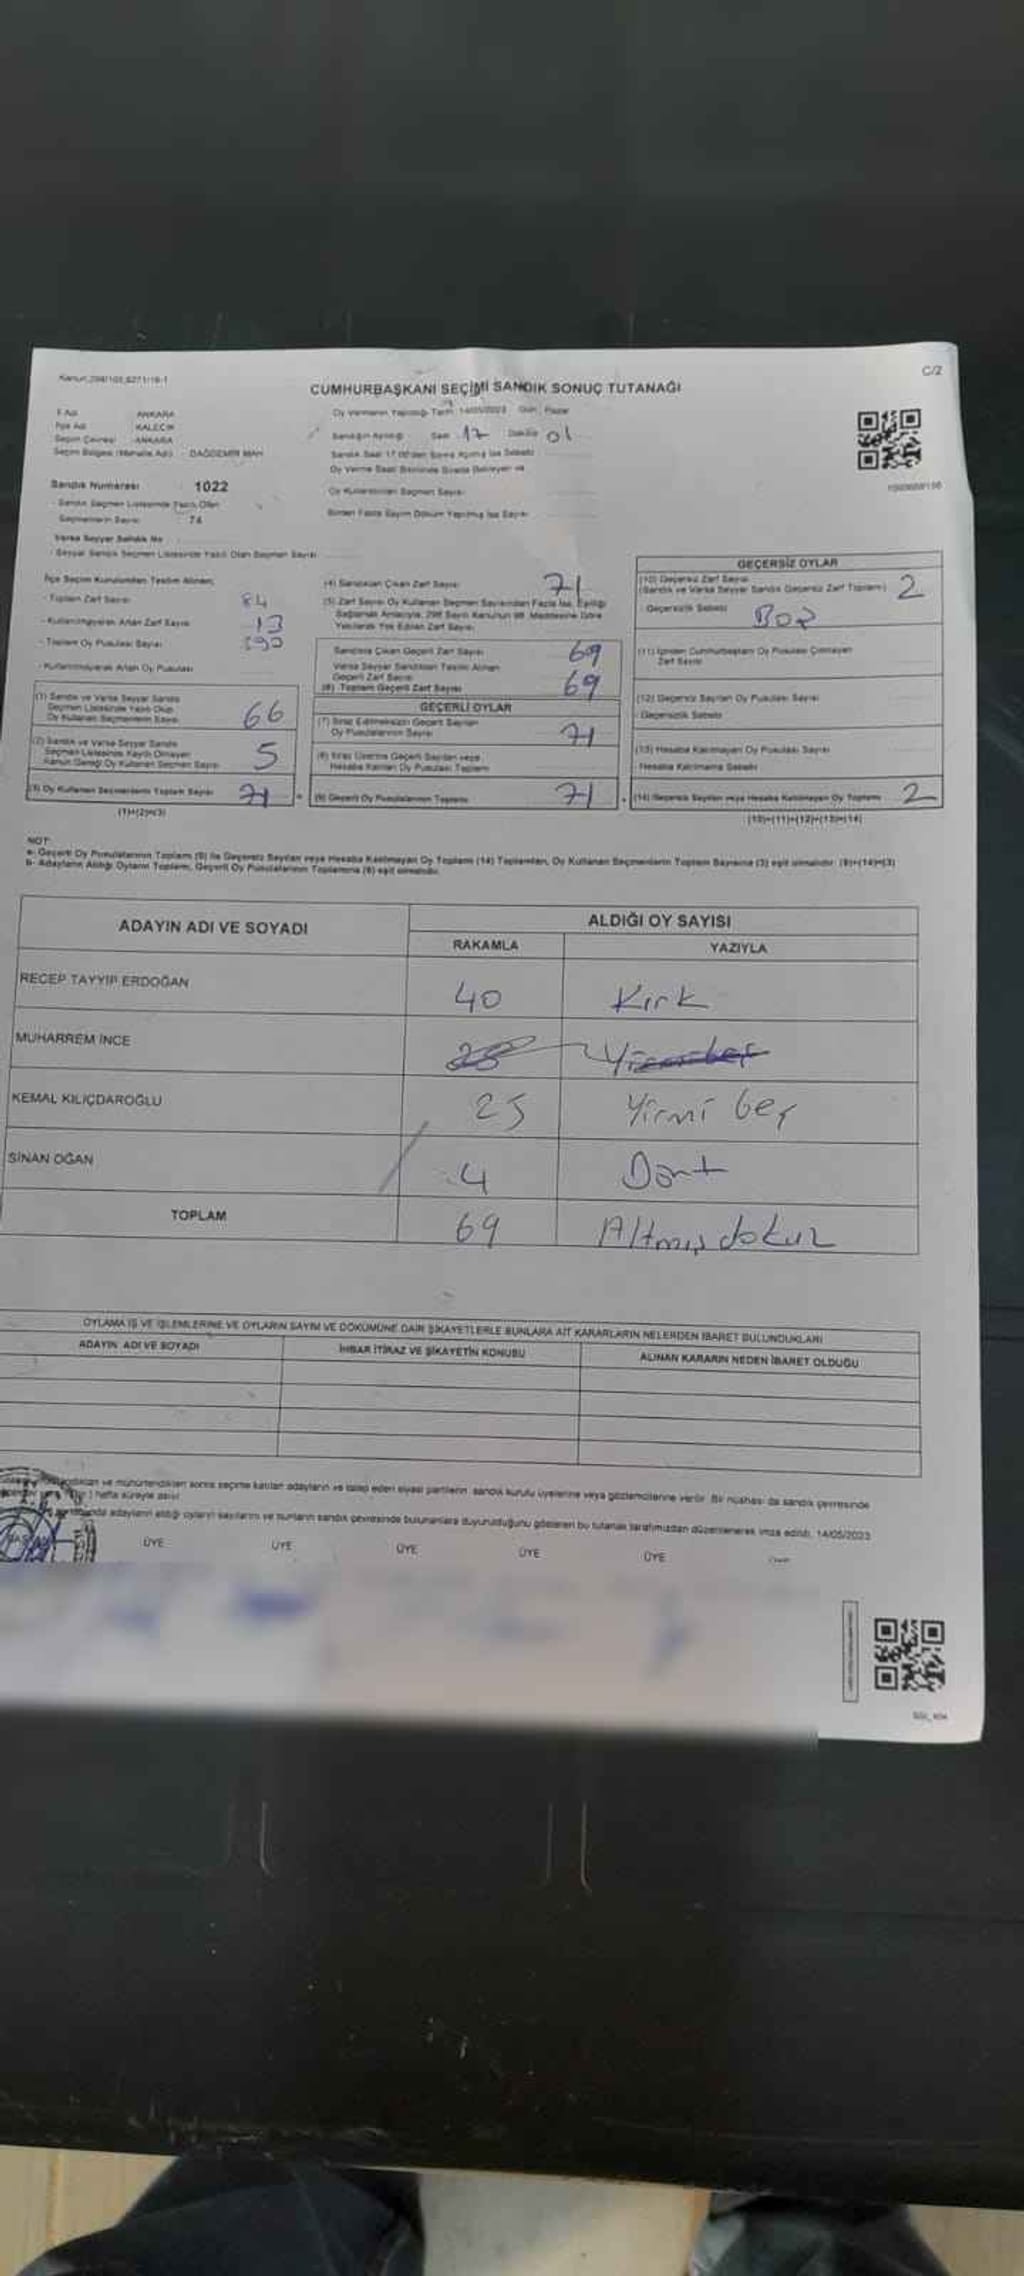 Kanun:298/105,6271/19-1
C/2
CUMHURBAŞKANI SEÇİMİ SANDIK SONUÇ TUTANAĞI
İl Adı ANKARA
İlçe Adı KALECİK
Seçim Çevresi ANKARA
Seçim Bölgesi (Mahalle Adı) DAĞDEMİR MAH
Oy Vermenin Yapıldığı Tarih 14/05/2023 Gün Pazar
Sandığın Açıldığı Saat 17 Dakika 01
Sandık Saat 17.00'den Sonra Açılmış İse Sebebi
Oy Verme Saati Bitiminde Sırada Bekleyen ve
Oy Kullandırılan Seçmen Sayısı
Birden Fazla Sayım Döküm Yapılmış İse Sayısı
Sandık Numarası 1022
- Sandık Seçmen Listesinde Yazılı Olan
Seçmenlerin Sayısı 74
Varsa Seyyar Sandık No
- Seyyar Sandık Seçmen Listesinde Yazılı Olan Seçmen Sayısı
İlçe Seçim Kurulundan Teslim Alınan;
- Toplam Zarf Sayısı 84
- Kullanılmayarak Artan Zarf Sayısı 13
- Toplam Oy Pusulası Sayısı
- Kullanılmayarak Artan Oy Pusulası
(1) Sandık ve Varsa Seyyar Sandık
Seçmen Listesinde Yazılı Olup
Oy Kullanan Seçmenlerin Sayısı 66
(2) Sandık ve Varsa Seyyar Sandık
Seçmen Listesinde Kayıtlı Olmayan
Kanun Gereği Oy Kullanan Seçmen Sayısı 5
(3) Oy Kullanan Seçmenlerin Toplam Sayısı 71
(1)+(2)=(3)
(4) Sandıktan Çıkan Zarf Sayısı 71
(5) Zarf Sayısı Oy Kullanan Seçmen Sayısından Fazla İse, Eşitliği
Sağlamak Amacıyla, 298 Sayılı Kanunun 98. Maddesine Göre
Yakılarak Yok Edilen Zarf Sayısı
Sandıkta Çıkan Geçerli Zarf Sayısı 69
Varsa Seyyar Sandıktan Teslim Alınan
Geçerli Zarf Sayısı
(6) Toplam Geçerli Zarf Sayısı 69
GEÇERLİ OYLAR
(7) İtiraz Edilmeksizin Geçerli Sayılan
Oy Pusulalarının Sayısı 71
(8) İtiraz Üzerine Geçerli Sayılan veya
Hesaba Katılan Oy Pusulası Toplamı
(9) Geçerli Oy Pusulalarının Toplamı 71
GEÇERSİZ OYLAR
(10) Geçersiz Zarf Sayısı
(Sandık ve Varsa Seyyar Sandık Geçersiz Zarf Toplamı) 2
Geçersizlik Sebebi
(11) İçinden Cumhurbaşkanı Oy Pusulası Çıkmayan
Zarf Sayısı
(12) Geçersiz Sayılan Oy Pusulası Sayısı
Geçersizlik Sebebi
(13) Hesaba Katılmayan Oy Pusulası Sayısı
Hesaba Katılmama Sebebi
(14) Geçersiz Sayılan veya Hesaba Katılmayan Oy Toplamı 2
(10)+(11)+(12)+(13)=(14)
NOT:
a- Geçerli Oy Pusulalarının Toplamı (9) ile Geçersiz Sayılan veya Hesaba Katılmayan Oy Toplamı (14) Toplamları, Oy Kullanan Seçmenlerin Toplam Sayısına (3) eşit olmalıdır. (9)+(14)=(3)
b- Adayların Aldığı Oyların Toplamı, Geçerli Oy Pusulalarının Toplamına (9) eşit olmalıdır.
ADAYIN ADI VE SOYADI
ALDIĞI OY SAYISI
RAKAMLA YAZIYLA
RECEP TAYYİP ERDOĞAN 40 Kırk
MUHARREM İNCE
KEMAL KILIÇDAROĞLU 25 Yirmi beş
SİNAN OĞAN 4 Dört
TOPLAM 69 Altmış dokuz
OYLAMA İŞ VE İŞLEMLERİNE VE OYLARIN SAYIM VE DÖKÜMÜNE DAİR ŞİKAYETLERLE BUNLARA AİT KARARLARIN NELERDEN İBARET BULUNDUKLARI
ADAYIN ADI VE SOYADI İHBAR İTİRAZ VE ŞİKAYETİN KONUSU ALINAN KARARIN NEDEN İBARET OLDUĞU
ve mühürlendikten sonra seçime katılan adayların ve talep eden siyasi partilerin sandık kurulu üyelerine veya gözlemcilerine verilir. Bir nüshası da sandık çevresinde
hafta süreyle asılır.
adayların aldığı oyların sayılarını ve bunların sandık çevresinde bulunanlara duyurulduğunu gösteren bu tutanak tarafımızdan düzenlenerek imza edildi. 14/05/2023
ÜYE ÜYE ÜYE ÜYE ÜYE